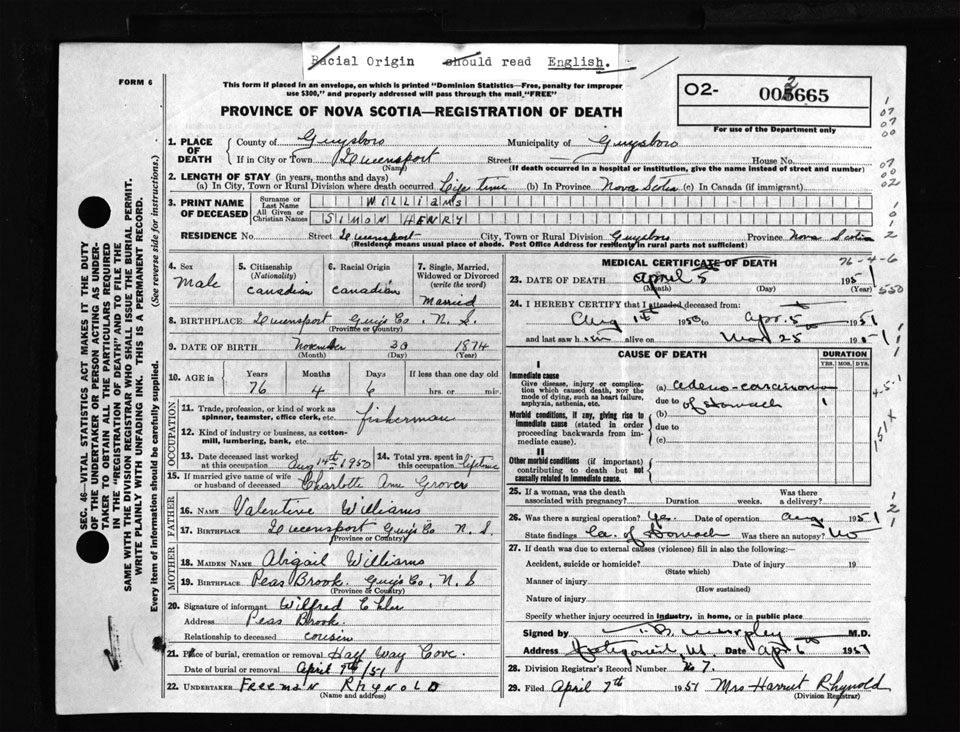 Racial Origin should read English.
FORM 6
This form if placed in an envelope, on which is printed "Dominion Statistics—Free, penalty for improper
use $300," and properly addressed will pass through the mail "FREE"
PROVINCE OF NOVA SCOTIA—REGISTRATION OF DEATH
02- 005665
2
For use of the Department only
SEC. 46—VITAL STATISTICS ACT MAKES IT THE DUTY
OF THE UNDERTAKER OR PERSON ACTING AS UNDER-
TAKER TO OBTAIN ALL THE PARTICULARS REQUIRED
IN THE "REGISTRATION OF DEATH" AND TO FILE THE
SAME WITH THE DIVISION REGISTRAR WHO SHALL ISSUE THE BURIAL PERMIT.
WRITE PLAINLY WITH UNFADING INK. THIS IS A PERMANENT RECORD.
Every item of Information should be carefully supplied. (See reverse side for instructions.)
1. PLACE OF DEATH County of Guysboro Municipality of Guysboro
If in City or Town Queensport Street — House No.
(Name) (If death occurred in a hospital or institution, give the name instead of street and number)
2. LENGTH OF STAY (in years, months and days)
(a) In City, Town or Rural Division where death occurred Life time (b) In Province Nova Scotia (c) In Canada (if immigrant)
3. PRINT NAME OF DECEASED Surname or Last Name WILLIAMS
All Given or Christian Names SIMON HENRY
RESIDENCE No. Street Queensport City, Town or Rural Division Guysboro Province Nova Scotia
(Residence means usual place of abode. Post Office Address for residents in rural parts not sufficient)
4. Sex Male
5. Citizenship (Nationality) Canadian
6. Racial Origin Canadian
7. Single, Married, Widowed or Divorced (write the word) Married
8. BIRTHPLACE Queensport Guys Co. N. S.
(Province or Country)
9. DATE OF BIRTH November 30 1874
(Month) (Day) (Year)
10. AGE in Years Months Days If less than one day old
76 4 6 hrs. or min.
OCCUPATION
11. Trade, profession, or kind of work as spinner, teamster, office clerk, etc. fisherman
12. Kind of industry or business, as cotton-mill, lumbering, bank, etc.
13. Date deceased last worked at this occupation Aug 14th 1950
14. Total yrs. spent in this occupation lifetime
15. If married give name of wife or husband of deceased Charlotte Ann Grover
FATHER
16. Name Valentine Williams
17. Birthplace Queensport Guys Co N. S.
(Province or Country)
MOTHER
18. MAIDEN NAME Abigail Williams
19. BIRTHPLACE Peas Brook. Guys Co, N. S
(Province or Country)
20. Signature of informant Wilfred
Address Peas Brook.
Relationship to deceased cousin
21. Place of burial, cremation or removal Half Way Cove.
Date of burial or removal April 7th/51
22. UNDERTAKER FREEMAN RHYNOLD
(Name and address)
MEDICAL CERTIFICATE OF DEATH
76-4-6
23. DATE OF DEATH April 5 1951
(Month) (Day) (Year)
550
24. I HEREBY CERTIFY that I attended deceased from:
Aug 1st 1950 to Apr. 5 1951
and last saw him alive on Mar 25 1951
CAUSE OF DEATH DURATION
YRS. MOS. DYS.
I
Immediate cause
Give disease, injury or complica-
tion which caused death, not the
mode of dying, such as heart failure,
asphyxia, asthenia, etc.
(a) adeno-carcinoma
due to of stomach 1
Morbid conditions, if any, giving rise to
immediate cause (stated in order
proceeding backwards from im-
mediate cause).
(b)
due to
(c)
II
Other morbid conditions (if important)
contributing to death but not
causally related to immediate cause.
25. If a woman, was the death associated with pregnancy? Duration weeks. Was there a delivery?
26. Was there a surgical operation? Yes. Date of operation Aug 1951
State findings Ca. of Stomach Was there an autopsy? No
27. If death was due to external causes (violence) fill in also the following:—
Accident, suicide or homicide? Date of injury 19
(State which)
Manner of injury
(How sustained)
Nature of injury
Specify whether injury occurred in industry, in home, or in public place
Signed by M.D.
Address Date Apr 6 1951
28. Division Registrar's Record Number No 7.
29. Filed April 7th 1951 Mrs Harriet Rhynold
(Division Registrar)